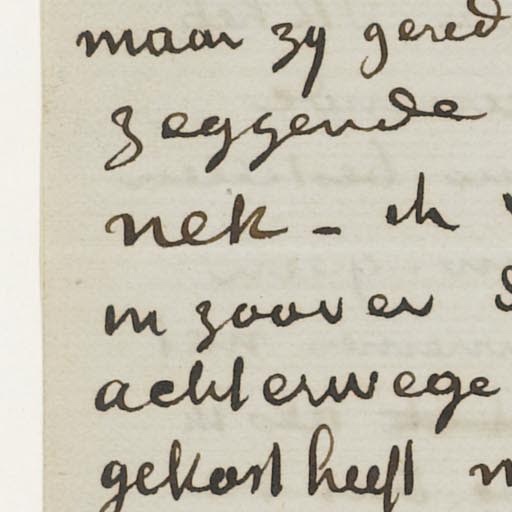 maar zy gered
zeggende
nek – ik
in zoover
achterwege
gekost heeft